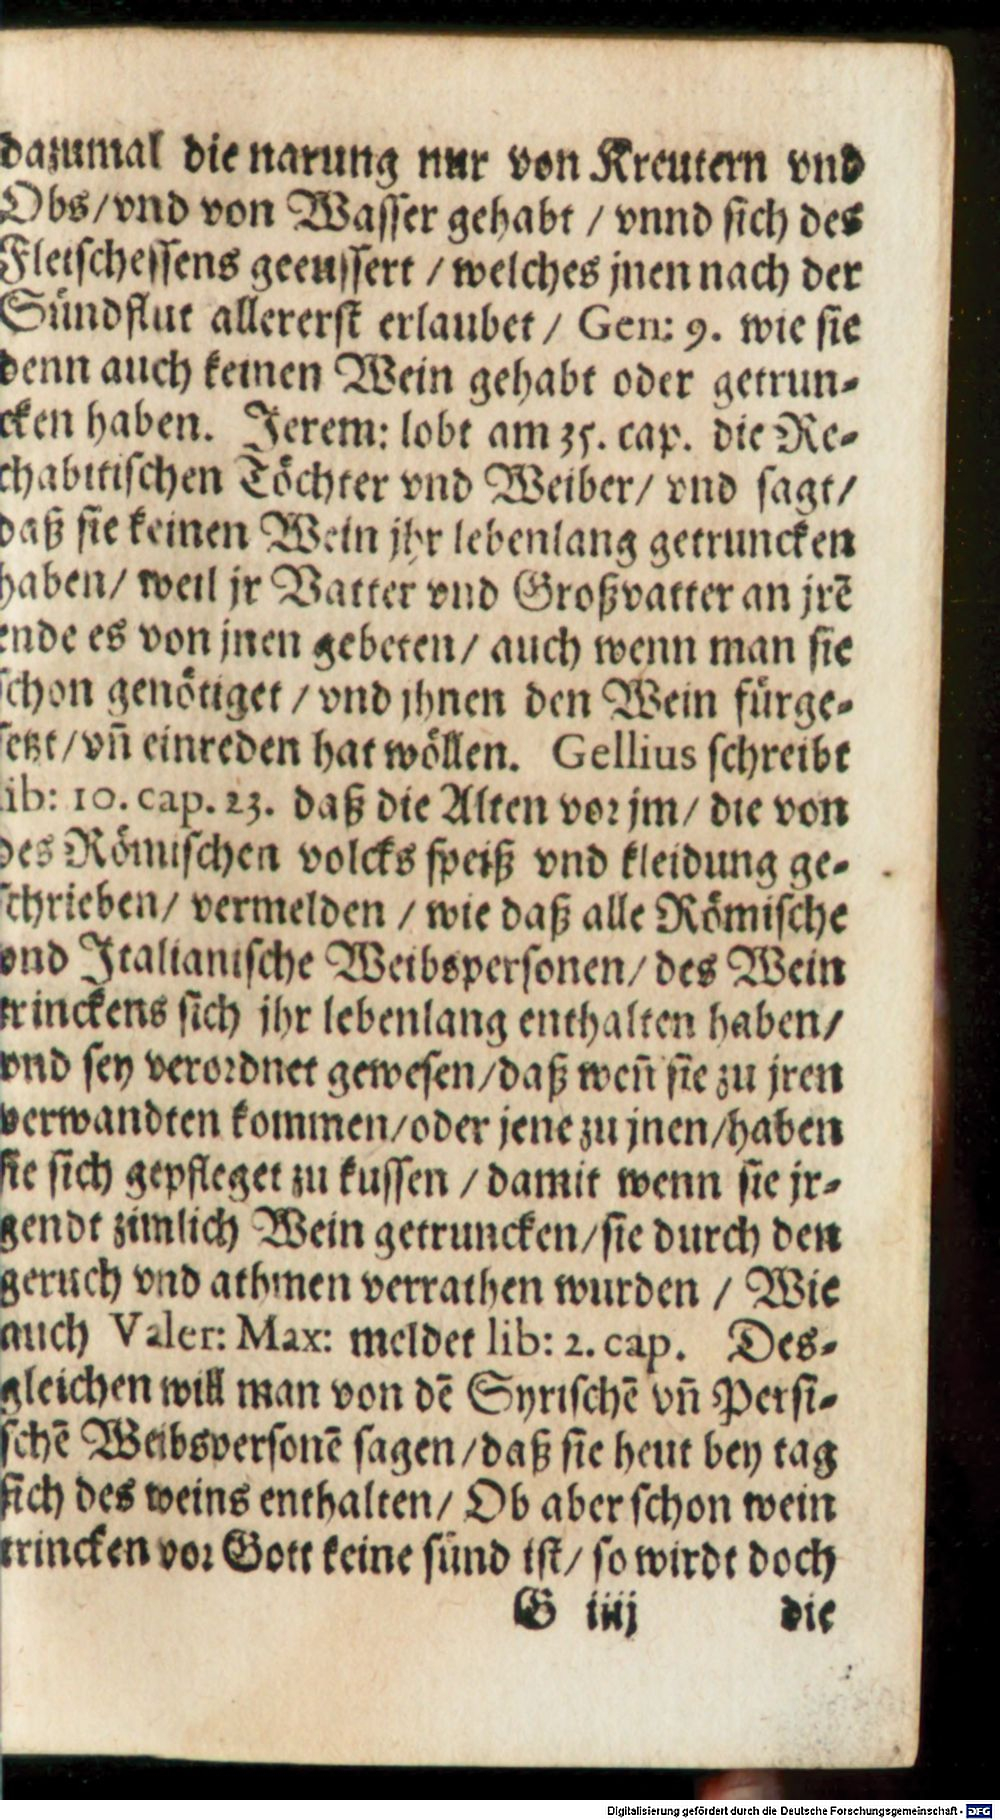 dazumal die narung nur von Kreutern vnd
Obs/vnd von Wasser gehabt / vnnd sich des
Fleischessens geeussert / welches jnen nach der
Sündflut allererst erlaubet / Gen: 9. wie sie
denn auch keinen Wein gehabt oder getrun-
cken haben. Jerem: lobt am 35. cap. die Re-
chabitischen Töchter vnd Weiber/ vnd sagt/
daß sie keinen Wein jhr lebenlang getruncken
haben/ weil jr Vatter vnd Großvatter an jrē
ende es von jnen gebeten/ auch wenn man sie
schon genötiget / vnd jhnen den Wein fürge-
setzt/vn̄ einreden hat wöllen. Gellius schreibt
lib: 10. cap. 23. daß die Alten vor jm/ die von
des Römischen volcks speiß vnd kleidung ge-
schrieben/ vermelden / wie daß alle Römische
vnd Italianische Weibspersonen/ des Wein
trinckens sich jhr lebenlang enthalten haben/
vnd sey verordnet gewesen/daß wen̄ sie zu jren
verwandten kommen/oder jene zu jnen/haben
sie sich gepfleget zu kussen / damit wenn sie jr-
gendt zimlich Wein getruncken/sie durch den
geruch vnd athmen verrathen wurden / Wie
auch Valer: Max: meldet lib: 2. cap. Des-
gleichen will man von dē Syrischē vn̄ Persi-
schē Weibspersonē sagen/daß sie heut bey tag
sich des weins enthalten/ Ob aber schon wein
trincken vor Gott keine sünd ist/ so wirdt doch
G iiij die
Digitalisierung gefördert durch die Deutsche Forschungsgemeinschaft - DFG